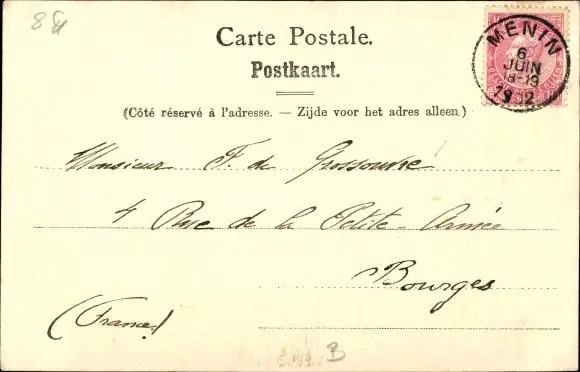 Carte Postale.
Postkaart.
(Côté réservé à l'adresse. — Zijde voor het adres alleen.)
MENIN
6
JUIN
18-19
1902
Monsieur F. de Grossouvre
4 Rue de la Petite-Armée
Bourges
(France)
B